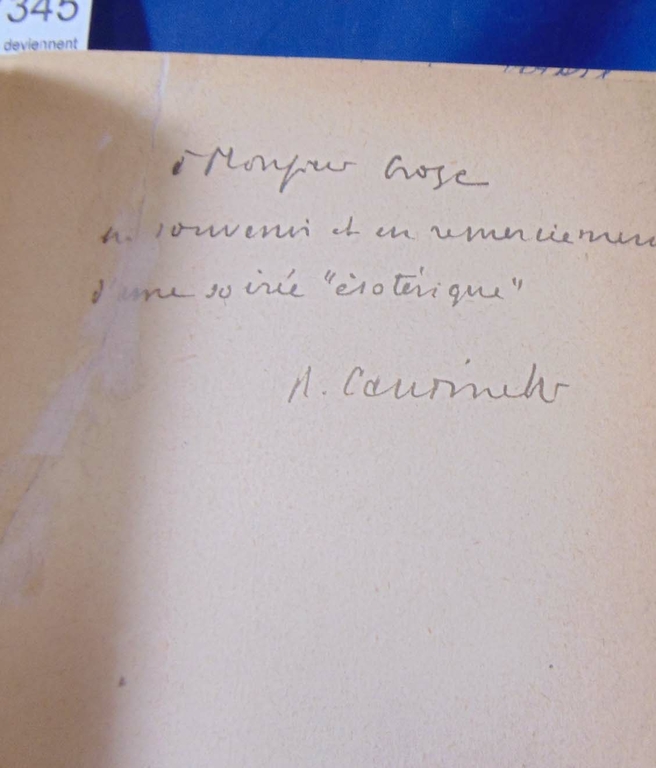 345
deviennent
à Monsieur
en souvenir et en remerciement
d'une soirée "ésotérique"